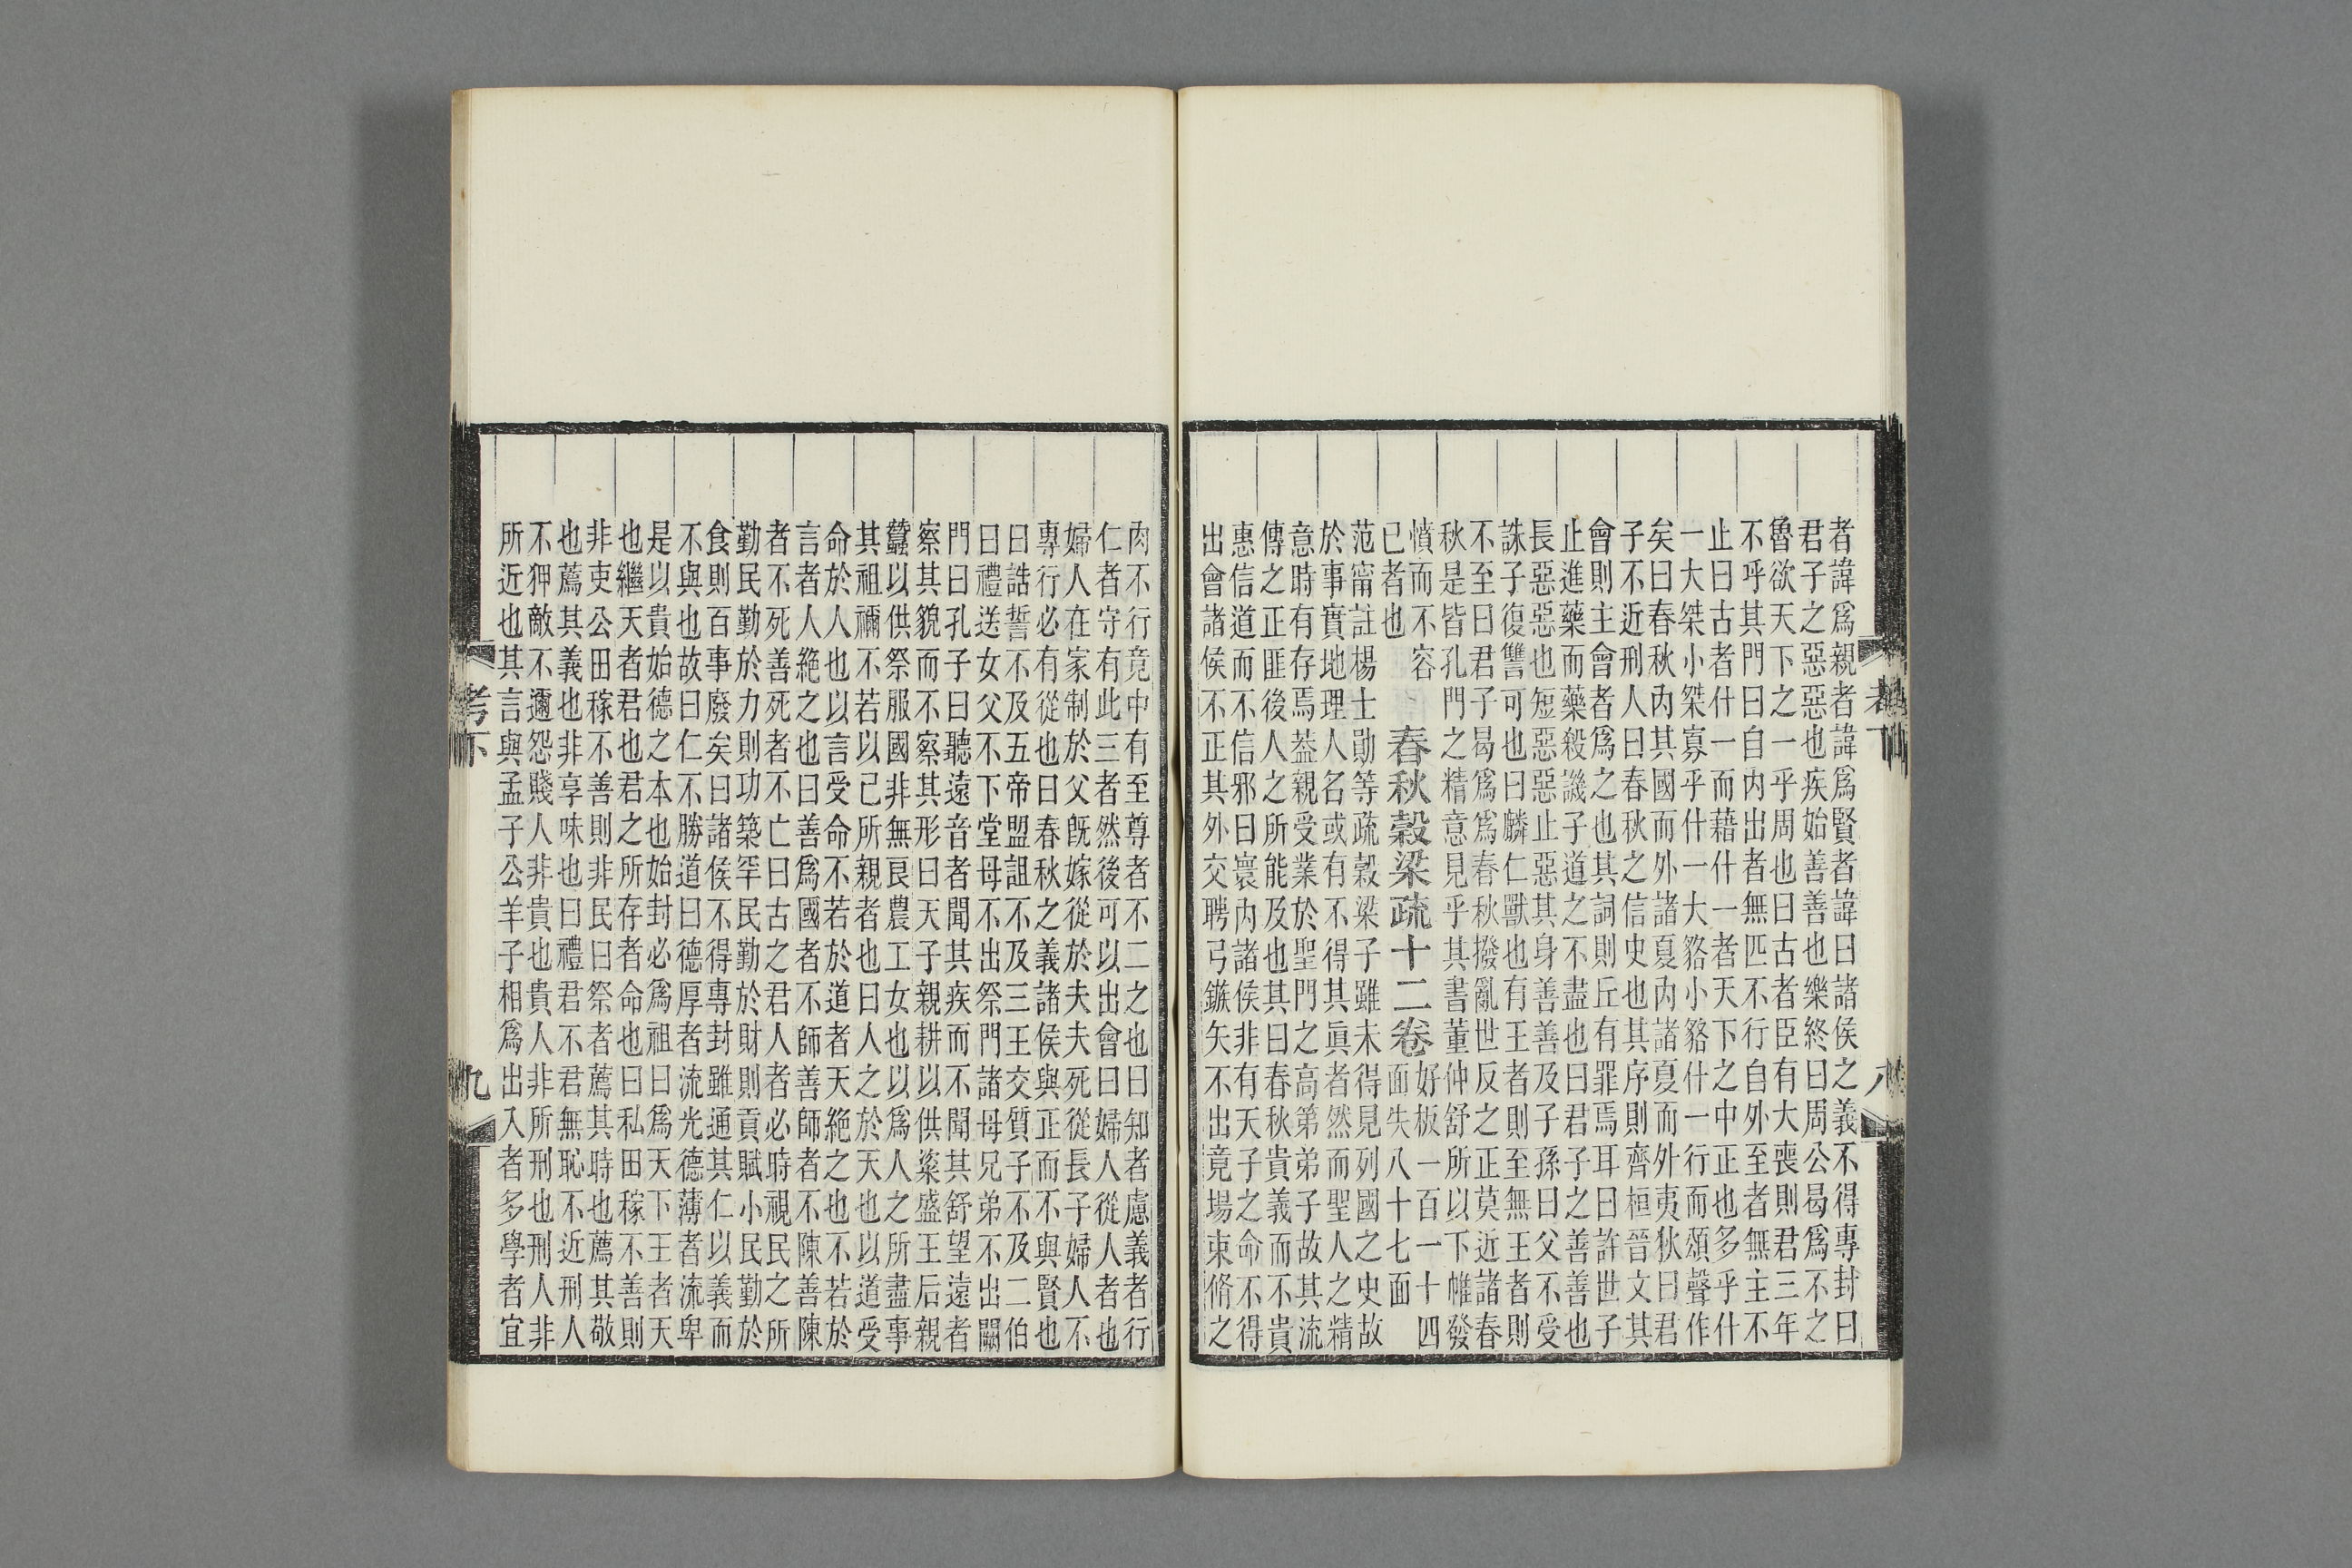 者諱爲親者諱爲賢者諱曰諸侯之義不得專封曰
君子之惡惡也疾始善善也樂終曰周公曷爲不之
魯欲天下之一乎周也曰古者臣有大喪則君三年
不呼其門曰自內出者無匹不行自外至者無主不
止曰古者什一而藉什一者天下之中正也多乎什
一大桀小桀寡乎什一大貉小貉什一行而頌聲作
矣曰春秋內其國而外諸夏內諸夏而外夷狄曰君
子不近刑人曰春秋之信史也其序則齊桓晉文其
會則主會者爲之也其詞則丘有罪焉耳曰許世子
止進藥而藥殺譏子道之不盡也曰君子之善善也
長惡惡也短惡惡止惡其身善善及子孫曰父不受
誅子復讐可也曰麟仁獸也有王者則至無王者則
不至曰君子曷爲爲春秋撥亂世反之正莫近諸春
秋是皆孔門之精意見乎其書董仲舒所以下帷發
憤而不容
已者也
春秋穀梁疏十二卷
好板一百一十四
面失八十七面
范甯註楊士勛等疏穀梁子雖未得見列國之史故
於事實地理人名或有不得其眞者然而聖人之精
意時有存焉葢親受業於聖門之高弟弟子故其流
傳之正匪後人之所能及也其曰春秋貴義而不貴
惠信道而不信邪曰寰內諸侯非有天子之命不得
出會諸侯不正其外交聘弓鍭矢不出竟場束脩之
考下
八
肉不行竟中有至尊者不二之也曰知者慮義者行
仁者守有此三者然後可以出會曰婦人從人者也
婦人在家制於父旣嫁從於夫夫死從長子婦人不
專行必有從也曰春秋之義諸侯與正而不與賢也
曰誥誓不及五帝盟詛不及三王交質子不及二伯
曰禮送女父不下堂母不出祭門諸母兄弟不出闕
門曰孔子曰聽遠音者聞其疾而不聞其舒望遠者
察其貌而不察其形曰天子親耕以供粢盛王后親
蠶以供祭服國非無良農工女也以爲人之所盡事
其祖禰不若以己所親者也曰人之於天也以道受
命於人也以言受命不若於道者天絶之也不若於
言者人絶之也曰善爲國者不師善師者不陳善陳
者不死善死者不亡曰古之君人者必時視民之所
勤民勤於力則功築罕民勤於財則貢賦小民勤於
食則百事廢矣曰諸侯不得專封雖通其仁以義而
不與也故曰仁不勝道曰德厚者流光德薄者流卑
是以貴始德之本也始封必爲祖曰爲天下王者天
也繼天者君也君之所存者命也曰私田稼不善則
非吏公田稼不善則非民曰祭者薦其時也薦其敬
也薦其義也非享味也曰禮君不君無恥不近刑人
不狎敵不邇怨賤人非貴也貴人非所刑也刑人非
所近也其言與孟子公羊子相爲出入者多學者宜
考下
九